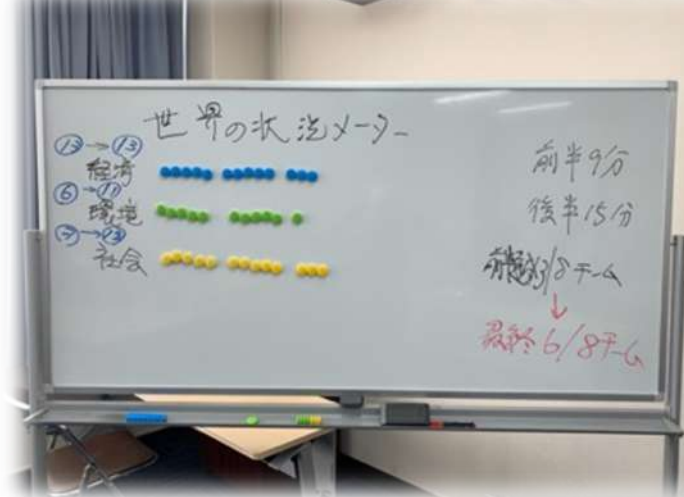 世界の状況メーター
⑬→⑬
経済
⑥→⑪
環境
⑦→⑬
社会
前半9分
後半15分
3/8チーム
↓
最終6/8チーム